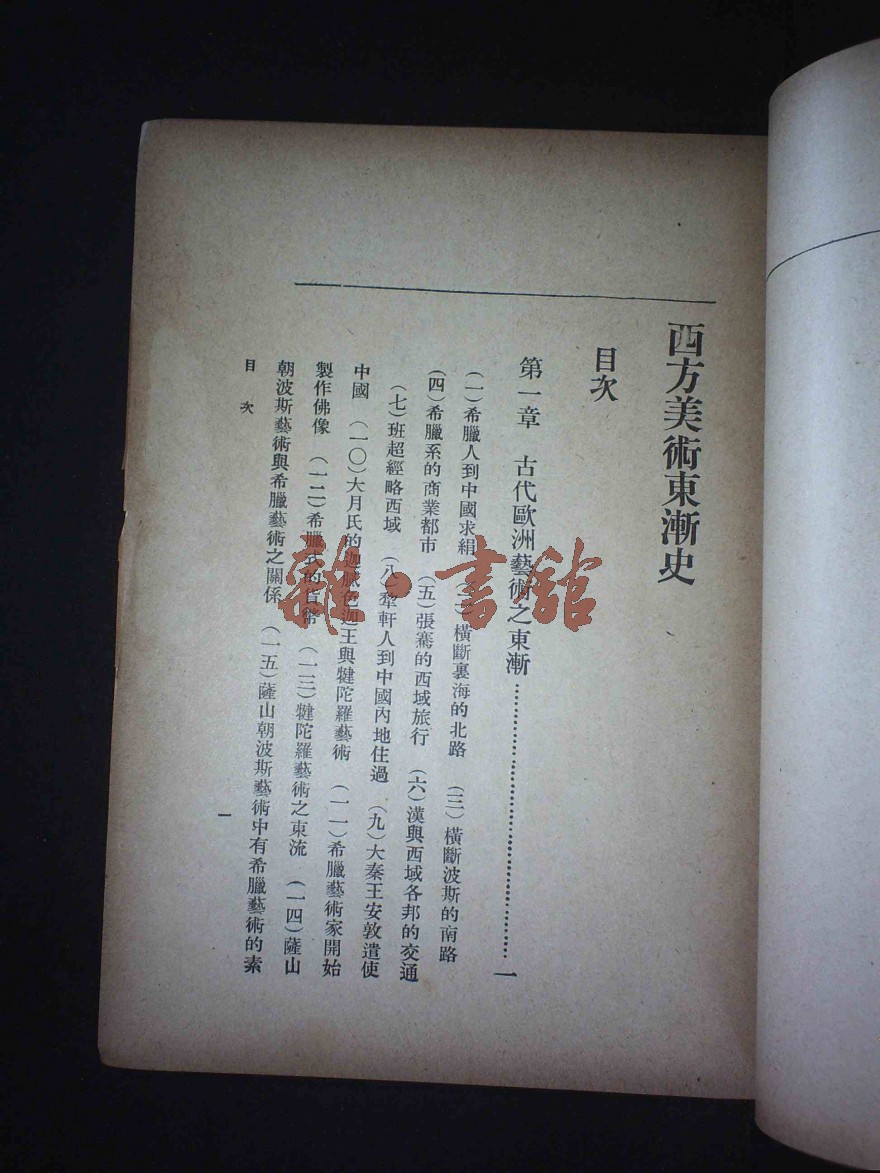 西方美術東漸史
目次
第一章 古代歐洲藝術之東漸……………………一
(一)希臘人到中國求絹 (二)橫斷裏海的北路 (三)橫斷波斯的南路
(四)希臘系的商業都市 (五)張騫的西域旅行 (六)漢與西域各邦的交通
(七)班超經略西域 (八)犂軒人到中國內地住過 (九)大秦王安敦遣使
中國 (一〇)大月氏的迦膩色迦王與犍陀羅藝術 (一一)希臘藝術家開始
製作佛像 (一二)希臘式的貨幣 (一三)犍陀羅藝術之東流 (一四)薩山
朝波斯藝術與希臘藝術之關係 (一五)薩山朝波斯藝術中有希臘藝術的素
目次
一
雜·書館